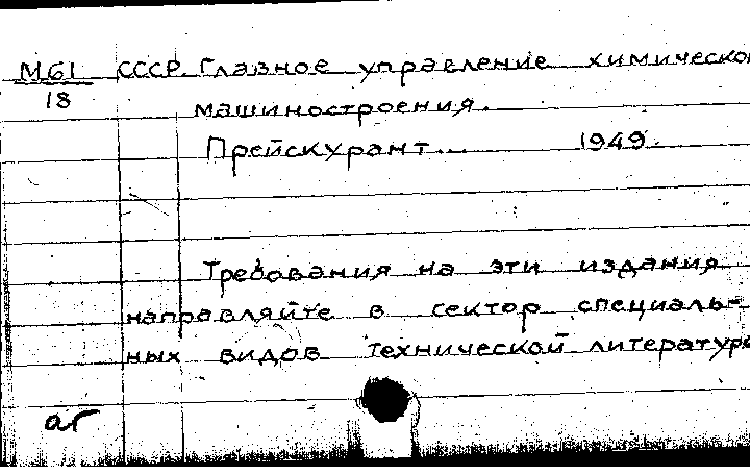 М61 СССР. Главное управление химическо
18 машиностроения.
Прейскурант... 1949.
Требования на эти издания
направляйте в сектор специаль-
ных видов технической литератур
аг